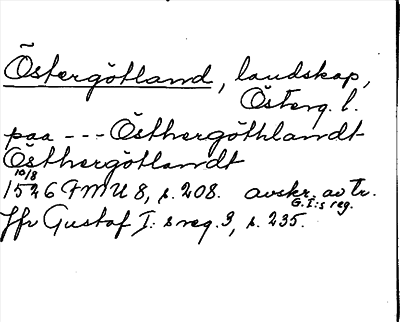 Östergötland, landskap,
Österg. l.
paa --- Östhergöthlandt
Östhergötlandt
10/8
1526 FMU 8, s. 208. avskr. av tr.
G. I:s reg.
Jfr Gustaf I:s reg. 3, s. 235.